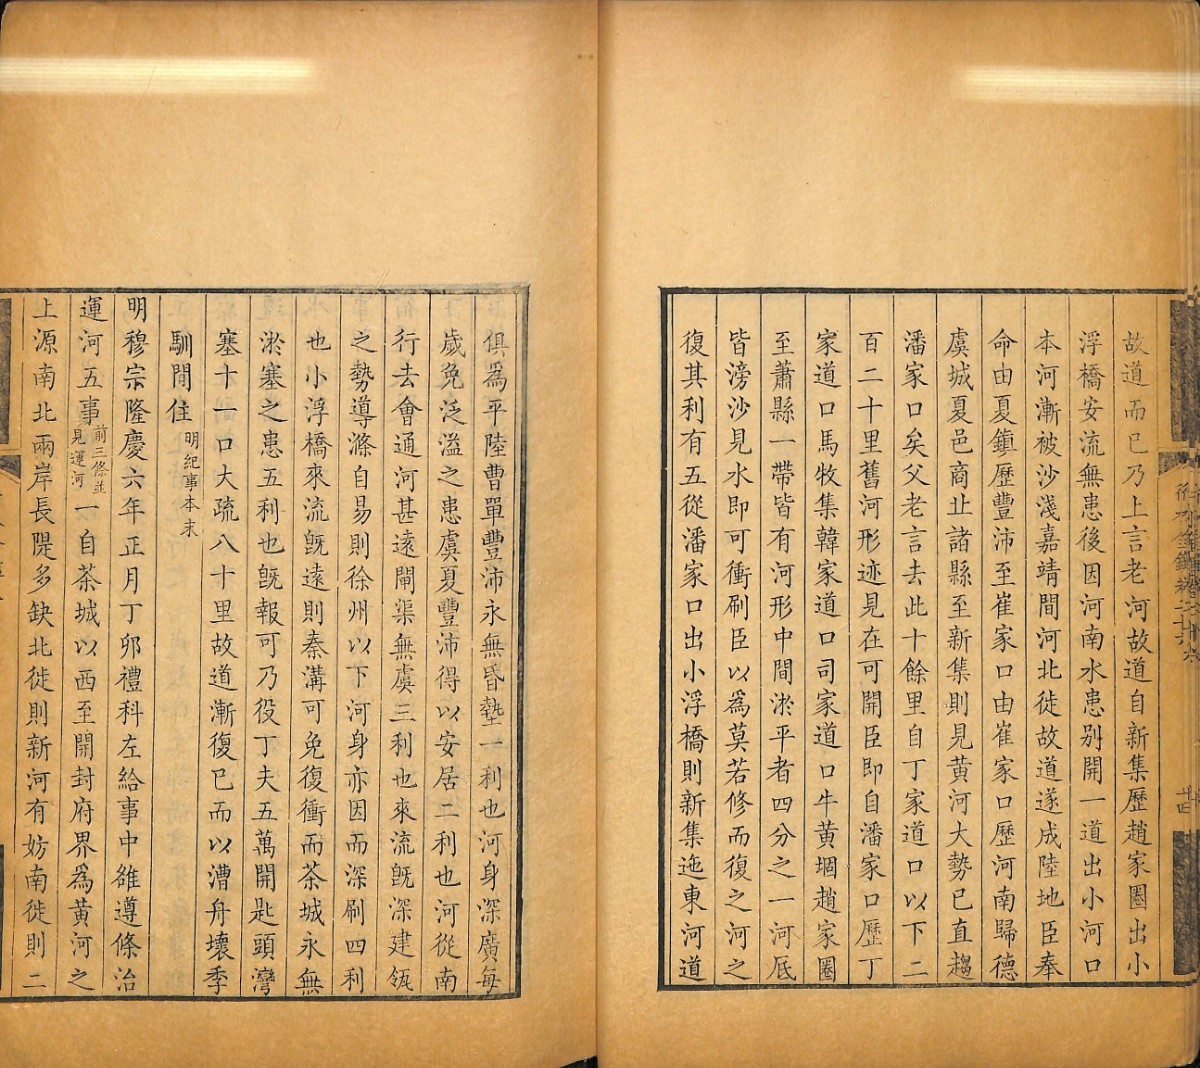 故道而已乃上言老河故道自新集歷趙家圈出小
浮橋安流無患後因河南水患別開一道出小河口
本河漸被沙淺嘉靖間河北徙故道遂成陸地臣奉
命由夏鎮歷豐沛至崔家口由崔家口歷河南歸德
虞城夏邑商丘諸縣至新集則見黄河大勢已直趨
潘家口矣父老言去此十餘里自丁家道口以下二
百二十里舊河形迹見在可開臣即自潘家口歷丁
家道口馬牧集韓家道口司家道口牛黄堌趙家圈
至蕭縣一帶皆有河形中間淤平者四分之一河厎
皆滂沙見水即可衝刷臣以爲莫若修而復之河之
復其利有五從潘家口出小浮橋則新集迤東河道
俱爲平陸曹單豐沛永無昏墊一利也河身深廣每
歲免泛溢之患虞夏豐沛得以安居二利也河從南
行去會通河甚遠閘渠無虞三利也來流旣深建瓴
之勢導滌自易則徐州以下河身亦因而深刷四利
也小浮橋來流旣遠則秦溝可免復衝而茶城永無
淤塞之患五利也旣報可乃役丁夫五萬開匙頭灣
塞十一口大疏八十里故道漸復已而以漕舟壞季
馴閒住明紀事本末
明穆宗隆慶六年正月丁卯禮科左給事中雒遵條治
運河五事前三條並見運河一自茶城以西至開封府界爲黄河之
上源南北兩岸長隄多缺北徙則新河有妨南徙則二